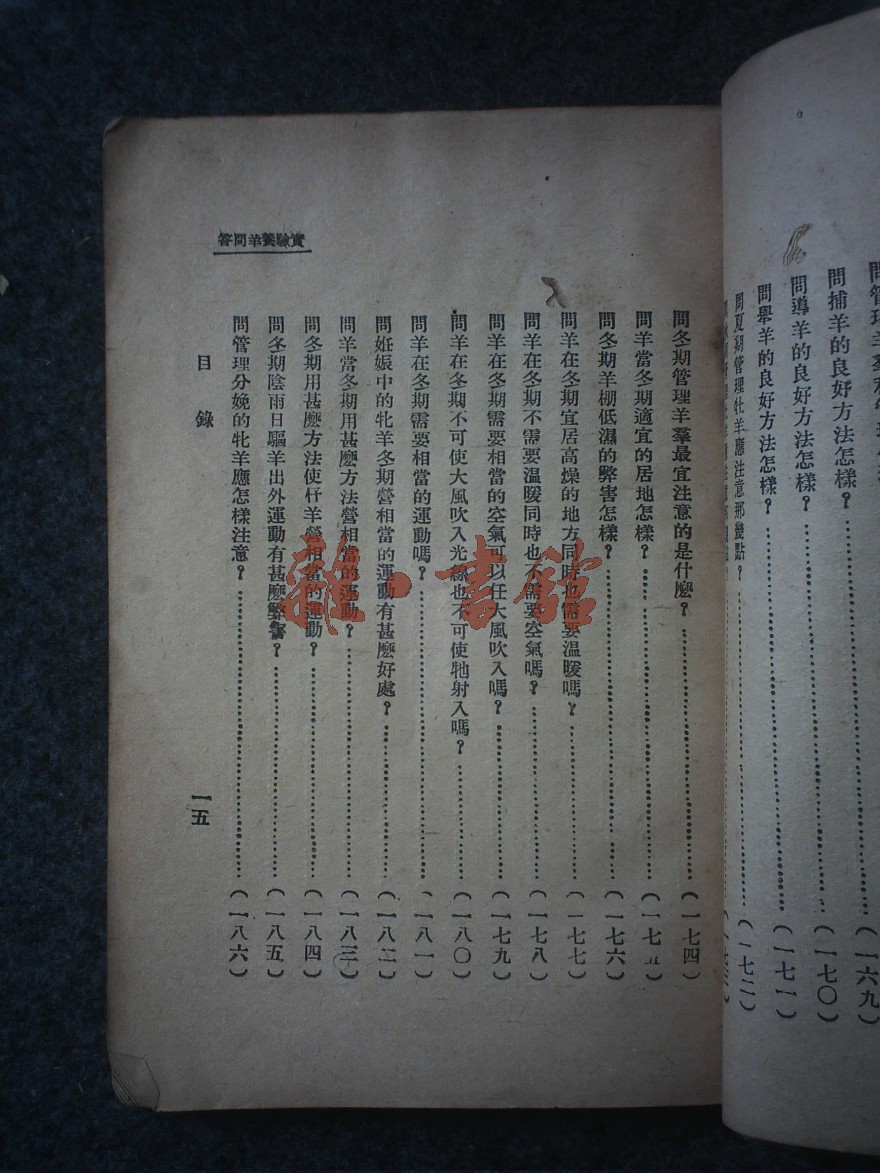 問管理羊羣
(一六九)
問捕羊的良好方法怎樣?(一七〇)
問導羊的良好方法怎樣?(一七一)
問舉羊的良好方法怎樣?(一七二)
問夏期管理牡羊應注意那幾點?
實驗養羊問答
問冬期管理羊羣最宜注意的是什麼?(一七四)
問羊當冬期適宜的居地怎樣?(一七五)
問冬期羊棚低濕的弊害怎樣?(一七六)
問羊在冬期宜居高燥的地方同時也需要温暖嗎?(一七七)
問羊在冬期不需要温暖同時也不需要空氣嗎?(一七八)
問羊在冬期需要相當的空氣可以任大風吹入嗎?(一七九)
問羊在冬期不可使大風吹入光線也不可使牠射入嗎?(一八〇)
問羊在冬期需要相當的運動嗎?(一八一)
問妊娠中的牝羊冬期營相當的運動有甚麼好處?(一八二)
問羊當冬期用甚麼方法營相當的運動?(一八三)
問冬期用甚麼方法使仔羊營相當的運動?(一八四)
問冬期陰雨日驅羊出外運動有甚麼弊害?(一八五)
問管理分娩的牝羊應怎樣注意?(一八六)
目錄
一五